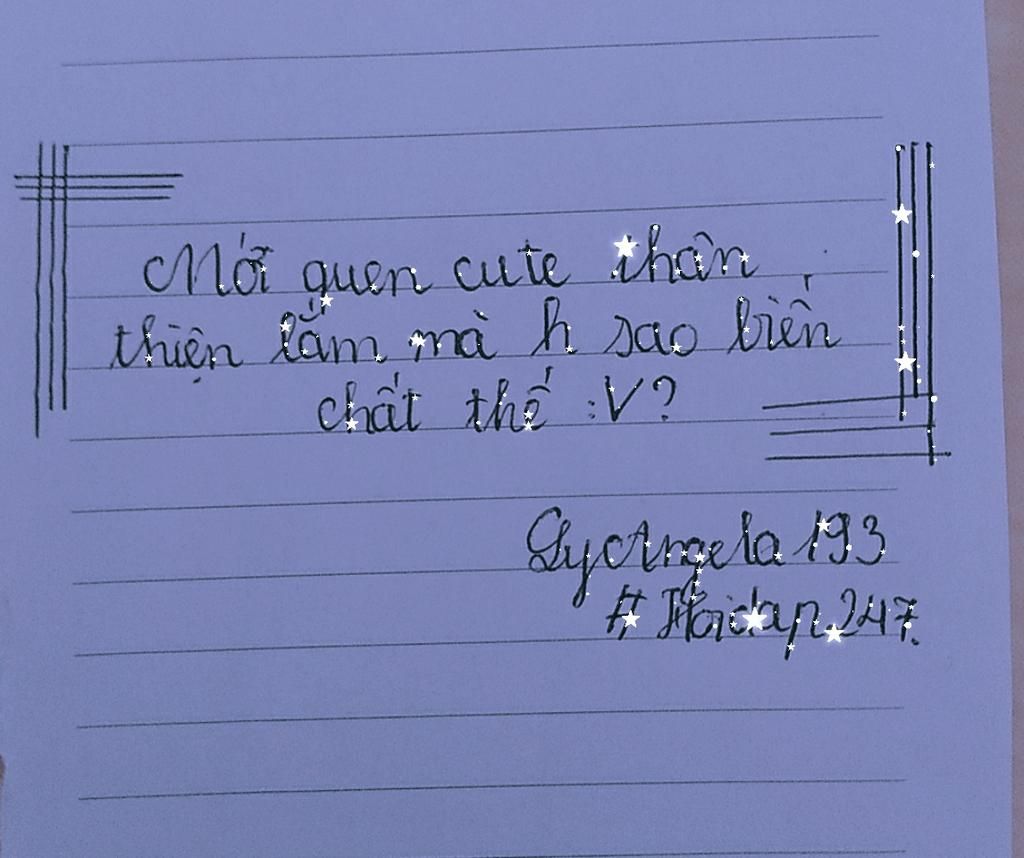 Mới quen cute thân
thiện lắm mà h sao biến
chất thế :V?
LyAngela193
#Hoidap247.